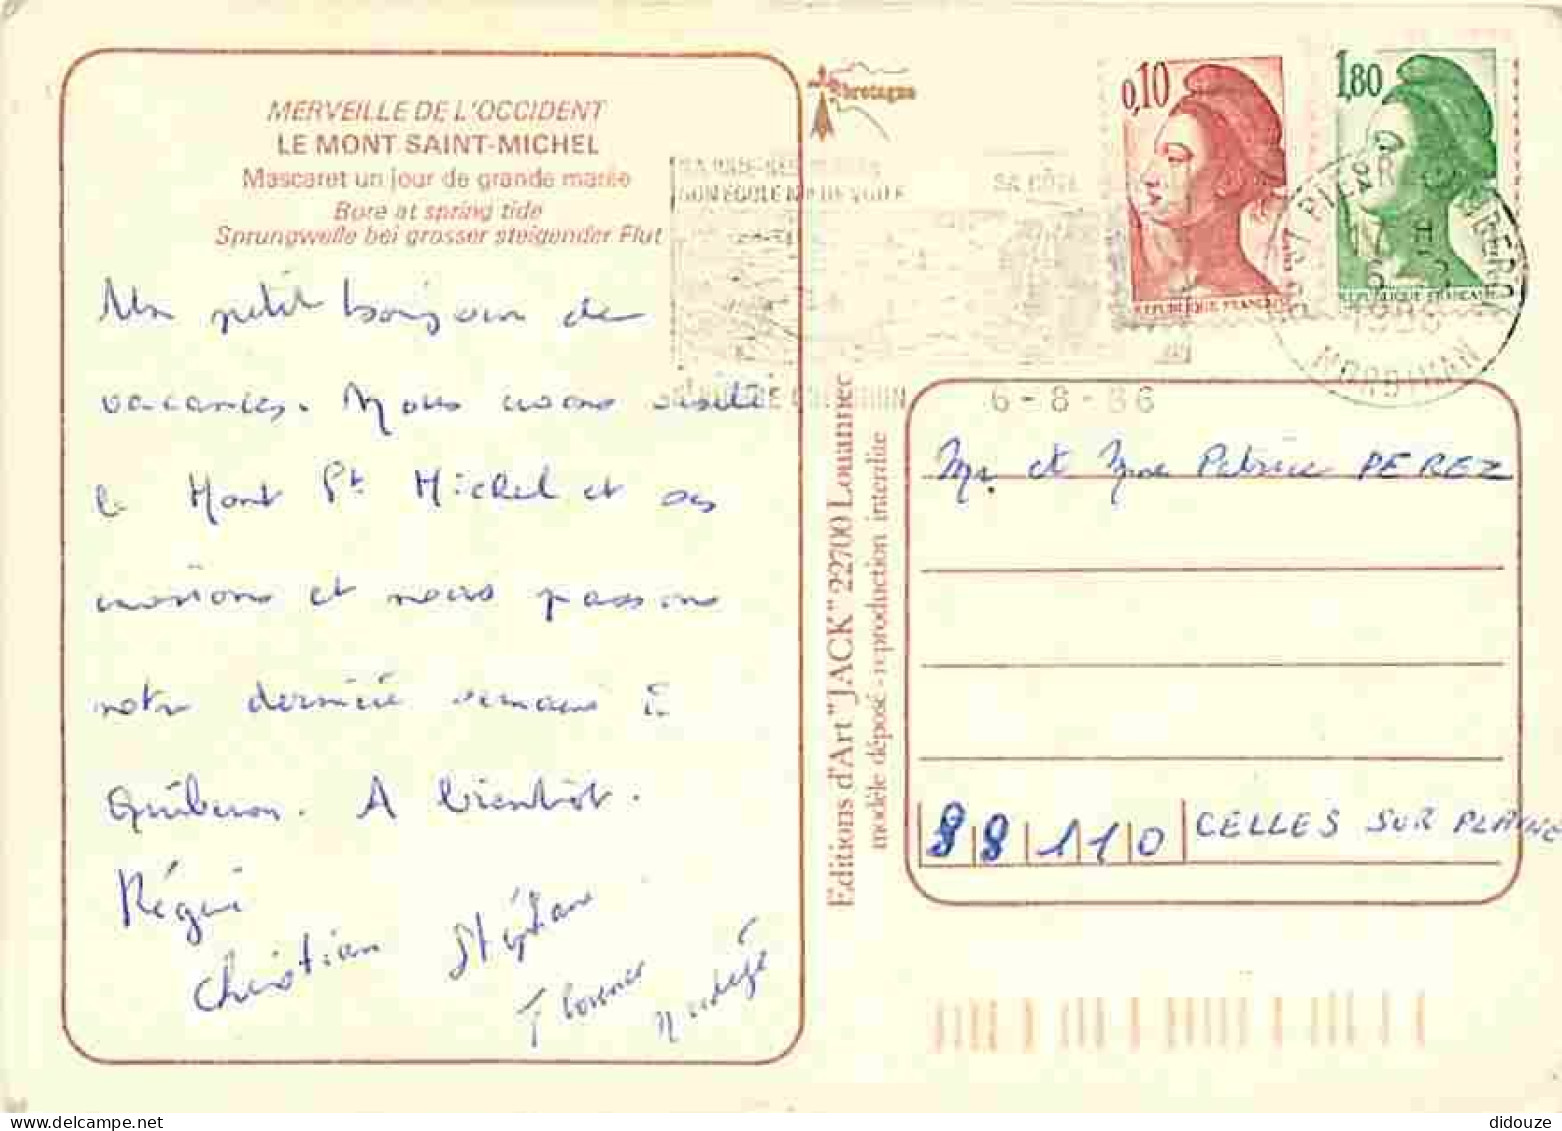 MERVEILLE DE L'OCCIDENT
LE MONT SAINT-MICHEL
Mascaret un jour de grande marée
Bore at spring tide
Sprungwelle bei grosser steigender Flut
Un petit bonjour de
vacances. Nous avons visité
le Mont St Michel et ses
environs et nous passons
notre dernière semaine à
Quiberon. A bientôt.
Régine
Christian
Stéphane
Florence
Nadège
Editions d'Art "JACK" 22700 Louannec
modèle déposé - reproduction interdite
bretagne
SON ECOLE DE VOILE
SA CÔTE
6-8-86
0,10
REPUBLIQUE FRANÇAISE
1,80
REPUBLIQUE FRANÇAISE
MORBIHAN
Mr et Mme Patrice PEREZ
88110 CELLES SUR PLAINE
didouze